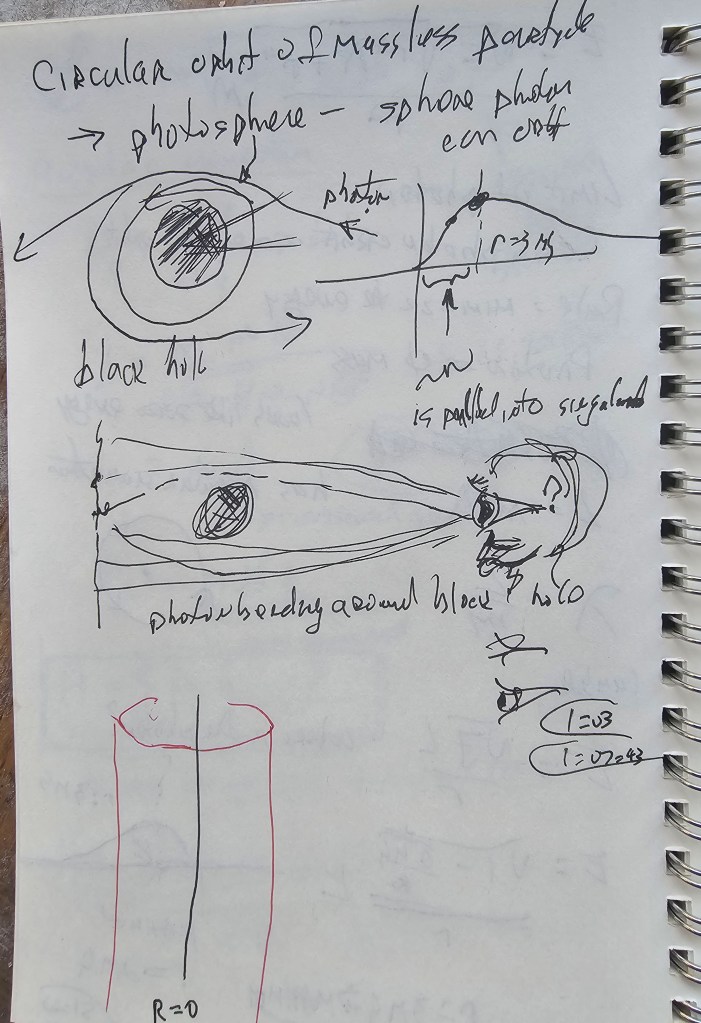 CIRCULAR orbit of Massless particle
→ photosphere - sphere photon
can orbit
photon
r=3Mg
black hole
is pulled into singularity
photon bending around black hole
1=03
1=07=43
R=0